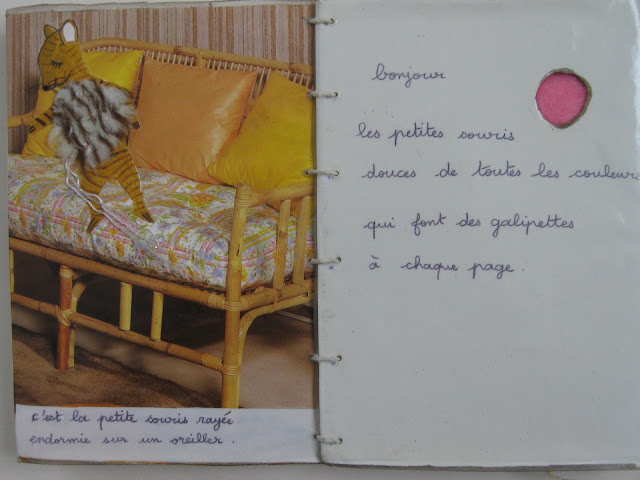 c'est la petite souris rayée
endormie sur un oreiller.
bonjour
les petites souris
douces de toutes les couleurs
qui font des galipettes
à chaque page.